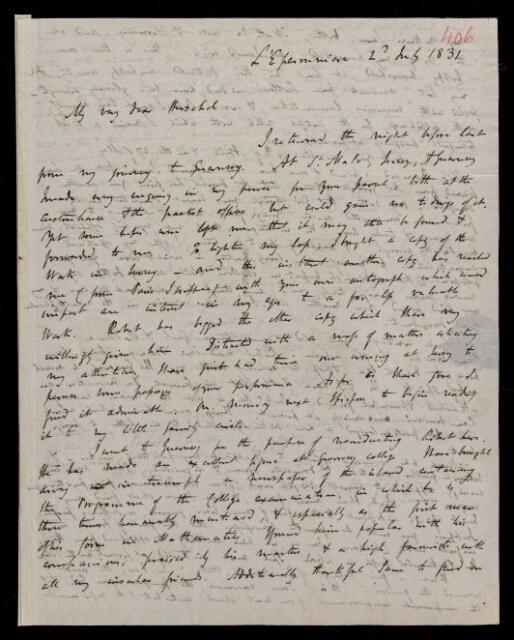 406
L'Eperonniere 2d July 1831
My very dear Herschel
I returned the night before last
from my journey to Guernsey. At St Malo, Jersey, & Guernsey
I made every enquiry in my power for your parcel, both at the
customhouse & the packet offices, but could gain no tidings of it.
Yet some hopes were left me that it may still be found &
forwarded to me. To lighten my loss, I bought a copy of the
Work in Jersey – and this instant another copy has reached
me (from Paris I suppose) with your own autograph which would
impart an interest in my eyes to a far less valuable
Work. Robert has begged the other copy which I have very
willingly given him. Distracted with a mass of matter awaiting
my attention I have just had time one evening at Jersey to
peruse some passages of your performance & so far as I have gone I
find it admirable. On Monday next I propose to begin reading
it to my little family circle.
I went to Guernsey for the purpose of reconducting Robert here.
He has made an excellent figure at Guernsey college. I have brought
away in triumph a newspaper of the island containing
the Programme of the College examination in which he is
three times honorably mentioned & especially as the first
of his form in Mathematics. I found him popular with his
companions, praised by his masters & a high favourite with
all my insular friends. Additionally thankful I am to find on